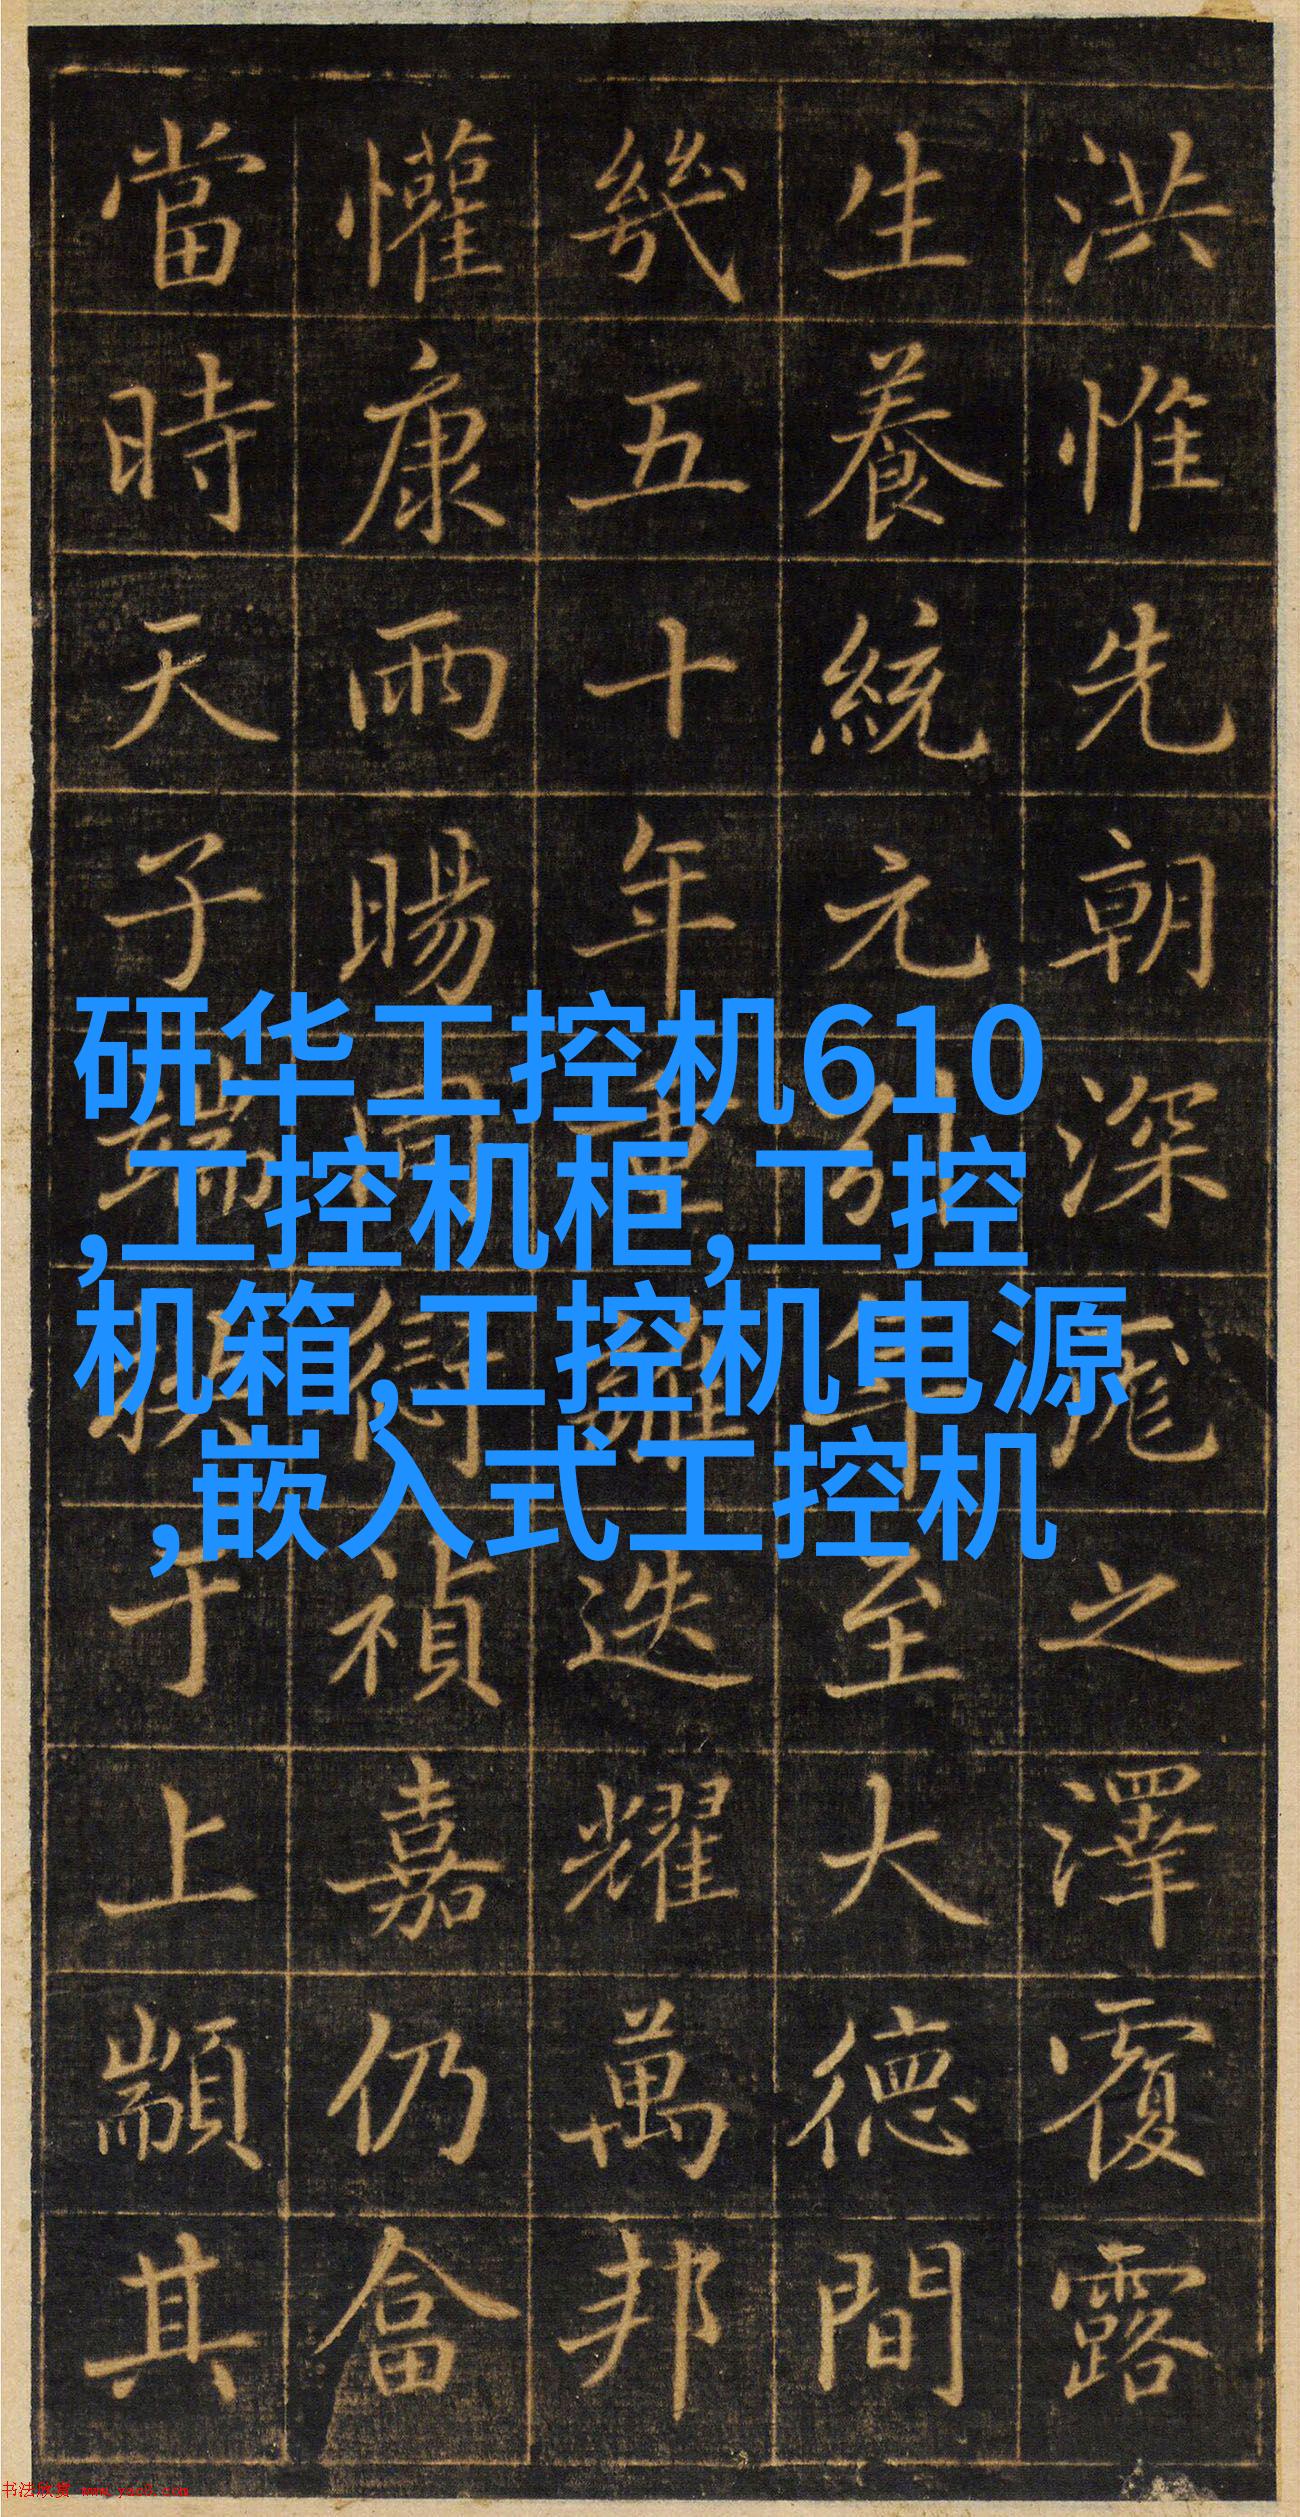 洪惟先朝深厖之澤覆露
生養統元年至大德間
幾五十年重離迭耀萬邦
懽康雨暘同禎嘉仍畬
當時天子端拱于上顒其
研华工控机610
,工控机柜,工控
机箱,工控机电源
,嵌入式工控机
书法欣赏 www.yac8.com